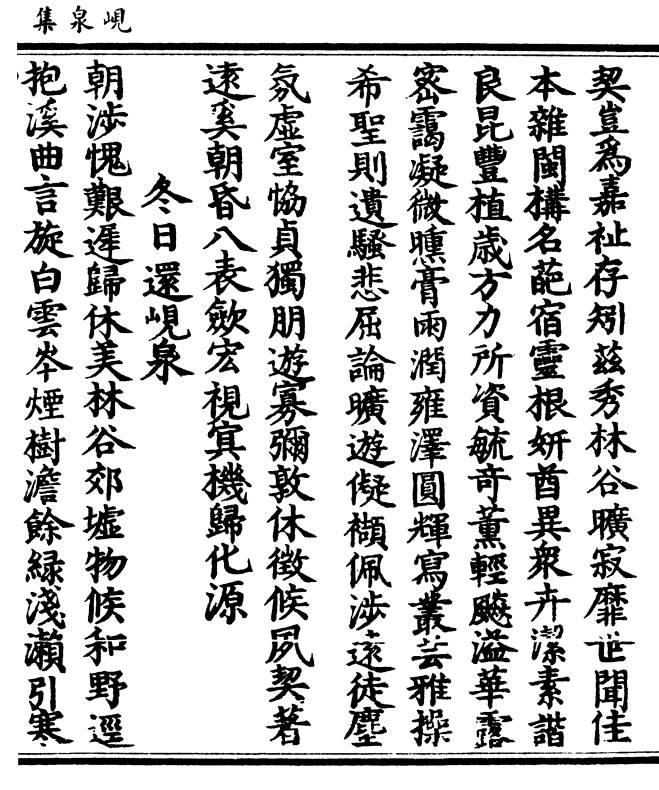 峴泉集
契豈為嘉祉存矧茲秀林谷曠寂靡世聞佳
本雜閩搆名葩宿靈根妍酋異衆卉潔素諧
良昆豐植歲方力所資毓奇薰輕飈溢華露
密靄凝微曛膏雨潤雍澤圓輝寫叢芸雅操
希聖則遺騷悲屈論曠遊儗襭佩涉遠徒塵
氛虛室恊貞獨朋遊寡彌敦休徵候夙契著
遠奚朝昏八表歛宏視寘機歸化源
冬日還峴泉
朝涉愧艱遲歸休美林谷郊墟物候和野逕
抱溪曲言旋白雲岑煙樹澹餘緑淺瀨引寒